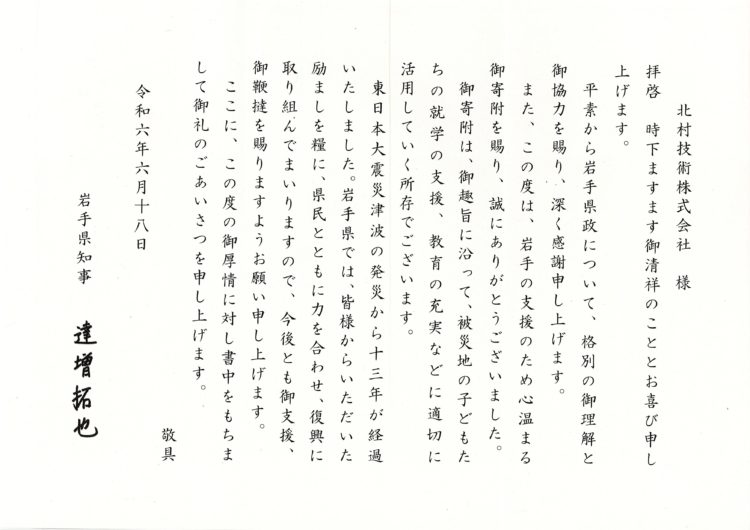 北村技術株式会社　様
拝啓　時下ますます御清祥のこととお喜び申し
上げます。
平素から岩手県政について、格別の御理解と
御協力を賜り、深く感謝申し上げます。
また、この度は、岩手の支援のため心温まる
御寄附を賜り、誠にありがとうございました。
御寄附は、御趣旨に沿って、被災地の子どもた
ちの就学の支援、教育の充実などに適切に
活用していく所存でございます。
東日本大震災津波の発災から十三年が経過
いたしました。岩手県では、皆様からいただいた
励ましを糧に、県民とともに力を合わせ、復興に
取り組んでまいりますので、今後とも御支援、
御鞭撻を賜りますようお願い申し上げます。
ここに、この度の御厚情に対し書中をもちま
して御礼のごあいさつを申し上げます。
敬具
令和六年六月十八日
岩手県知事　達増拓也